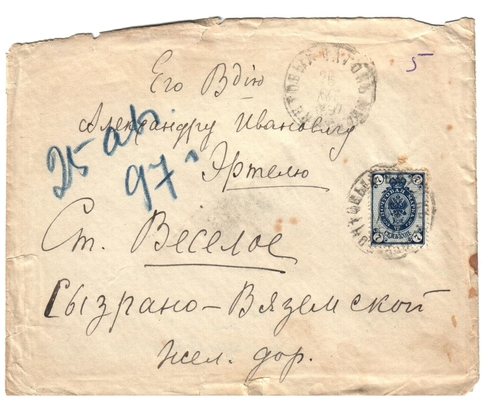 5
Его Вдію
Александру Ивановичу
Эртелю
25 ав.
97
Ст. Веселое
Сызрано-Вяземской
жел. дор.
7 7
7 7